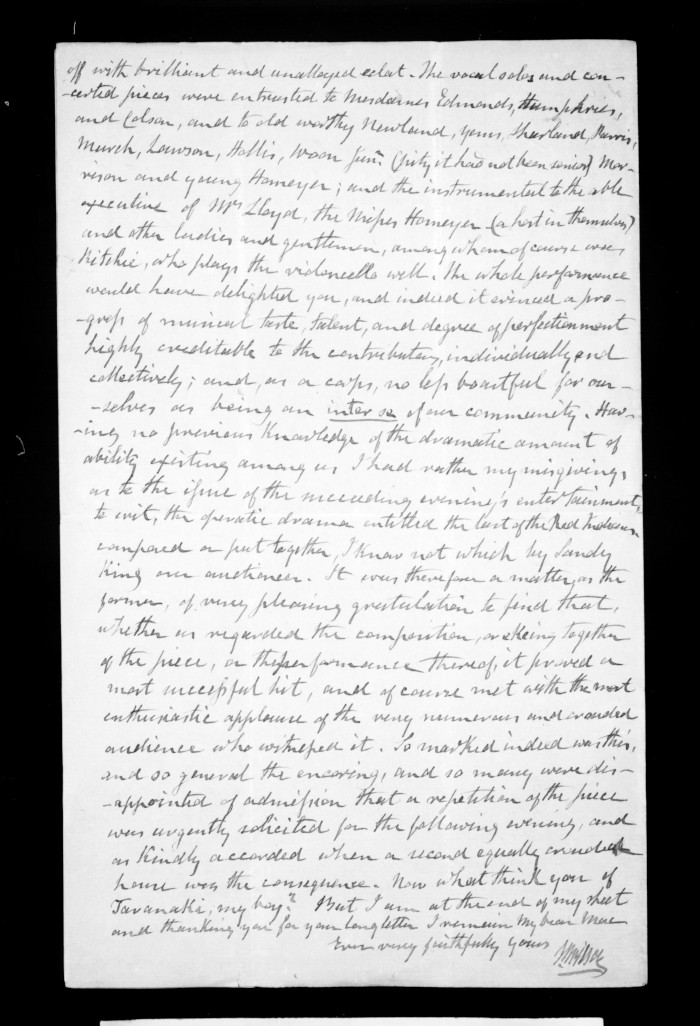 off with brilliant and unalloyed eclat. The vocal solos and con-
-certed pieces were entrusted to Mesdames Edmonds, Humphries,
and Colson, and to old worthy Newland, Yems, Sharland, Parris,
Murch, Lawson, Hollis, Woon Junr. (pity it had not been senior) Mor-
rison and young Homeyer; and the instrumental to the able
executive of Mrs Lloyd, the Misses Homeyer (a host in themselves)
and other ladies and gentlemen, among whom of course was
Ritchie, who plays the violoncello well. The whole performance
would have delighted you, and indeed it evinced a pro-
-gress of musical taste, talent, and degree of perfectionment
highly creditable to the contributary, individually and
collectively; and, as a corps, no less boastful for our-
-selves as being an inter se of our community. Hav-
-ing no previous knowledge of the dramatic amount of
ability existing among us I had rather my misgivings
as to the issue of the succeeding evening's entertainment,
to wit, the operatic drama entitled the last of the Red Indians
composed or put together, I know not which by Sandy
King our auctioneer. It was therefore a matter, as the
former, of very pleasing gratulation to find that,
whether as regarded the composition, or skeing together
of the piece, or the performance thereof, it proved a
most successful hit, and of course met with the most
enthusiastic applause of the very numerous and crowded
audience who witnessed it. So marked indeed was this,
and so general the encoring, and so many were dis-
-appointed of admission that a repetition of the piece
was urgently solicited for the following evening, and
as kindly accorded when a second equally crowded
house was the consequence. Now what think you of
Taranaki, my boy? But I am at the end of my sheet
and thanking you for your long letter I remain My dear Mac
Ever very faithfully yours